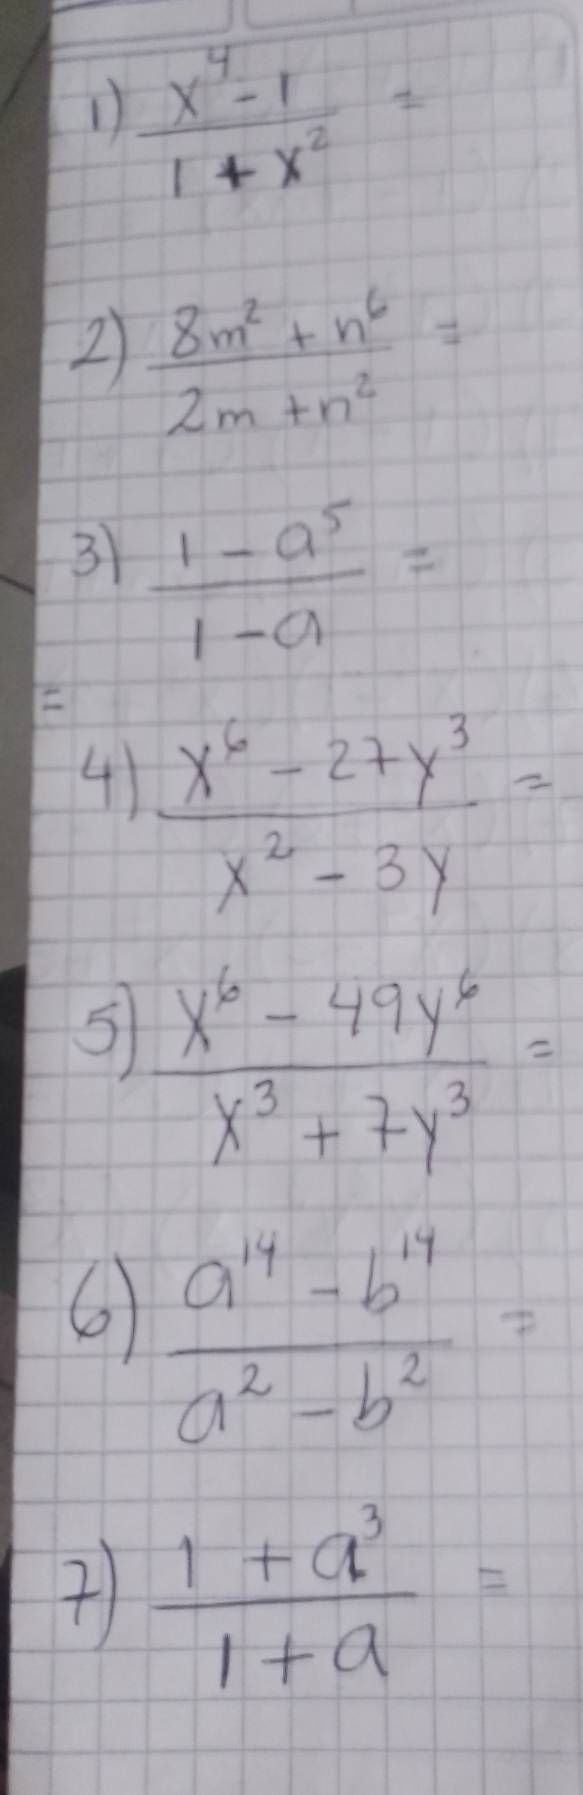 1) x⁴ - 1 / 1 + x² =
2) 8m² + n⁶ / 2m + n² =
3) 1 - a⁵ / 1 - a =
=
4) x⁶ - 27y³ / x² - 3y =
5) x⁶ - 49y⁶ / x³ + 7y³ =
6) a¹⁴ - b¹⁴ / a² - b² =
7) 1 + a³ / 1 + a =